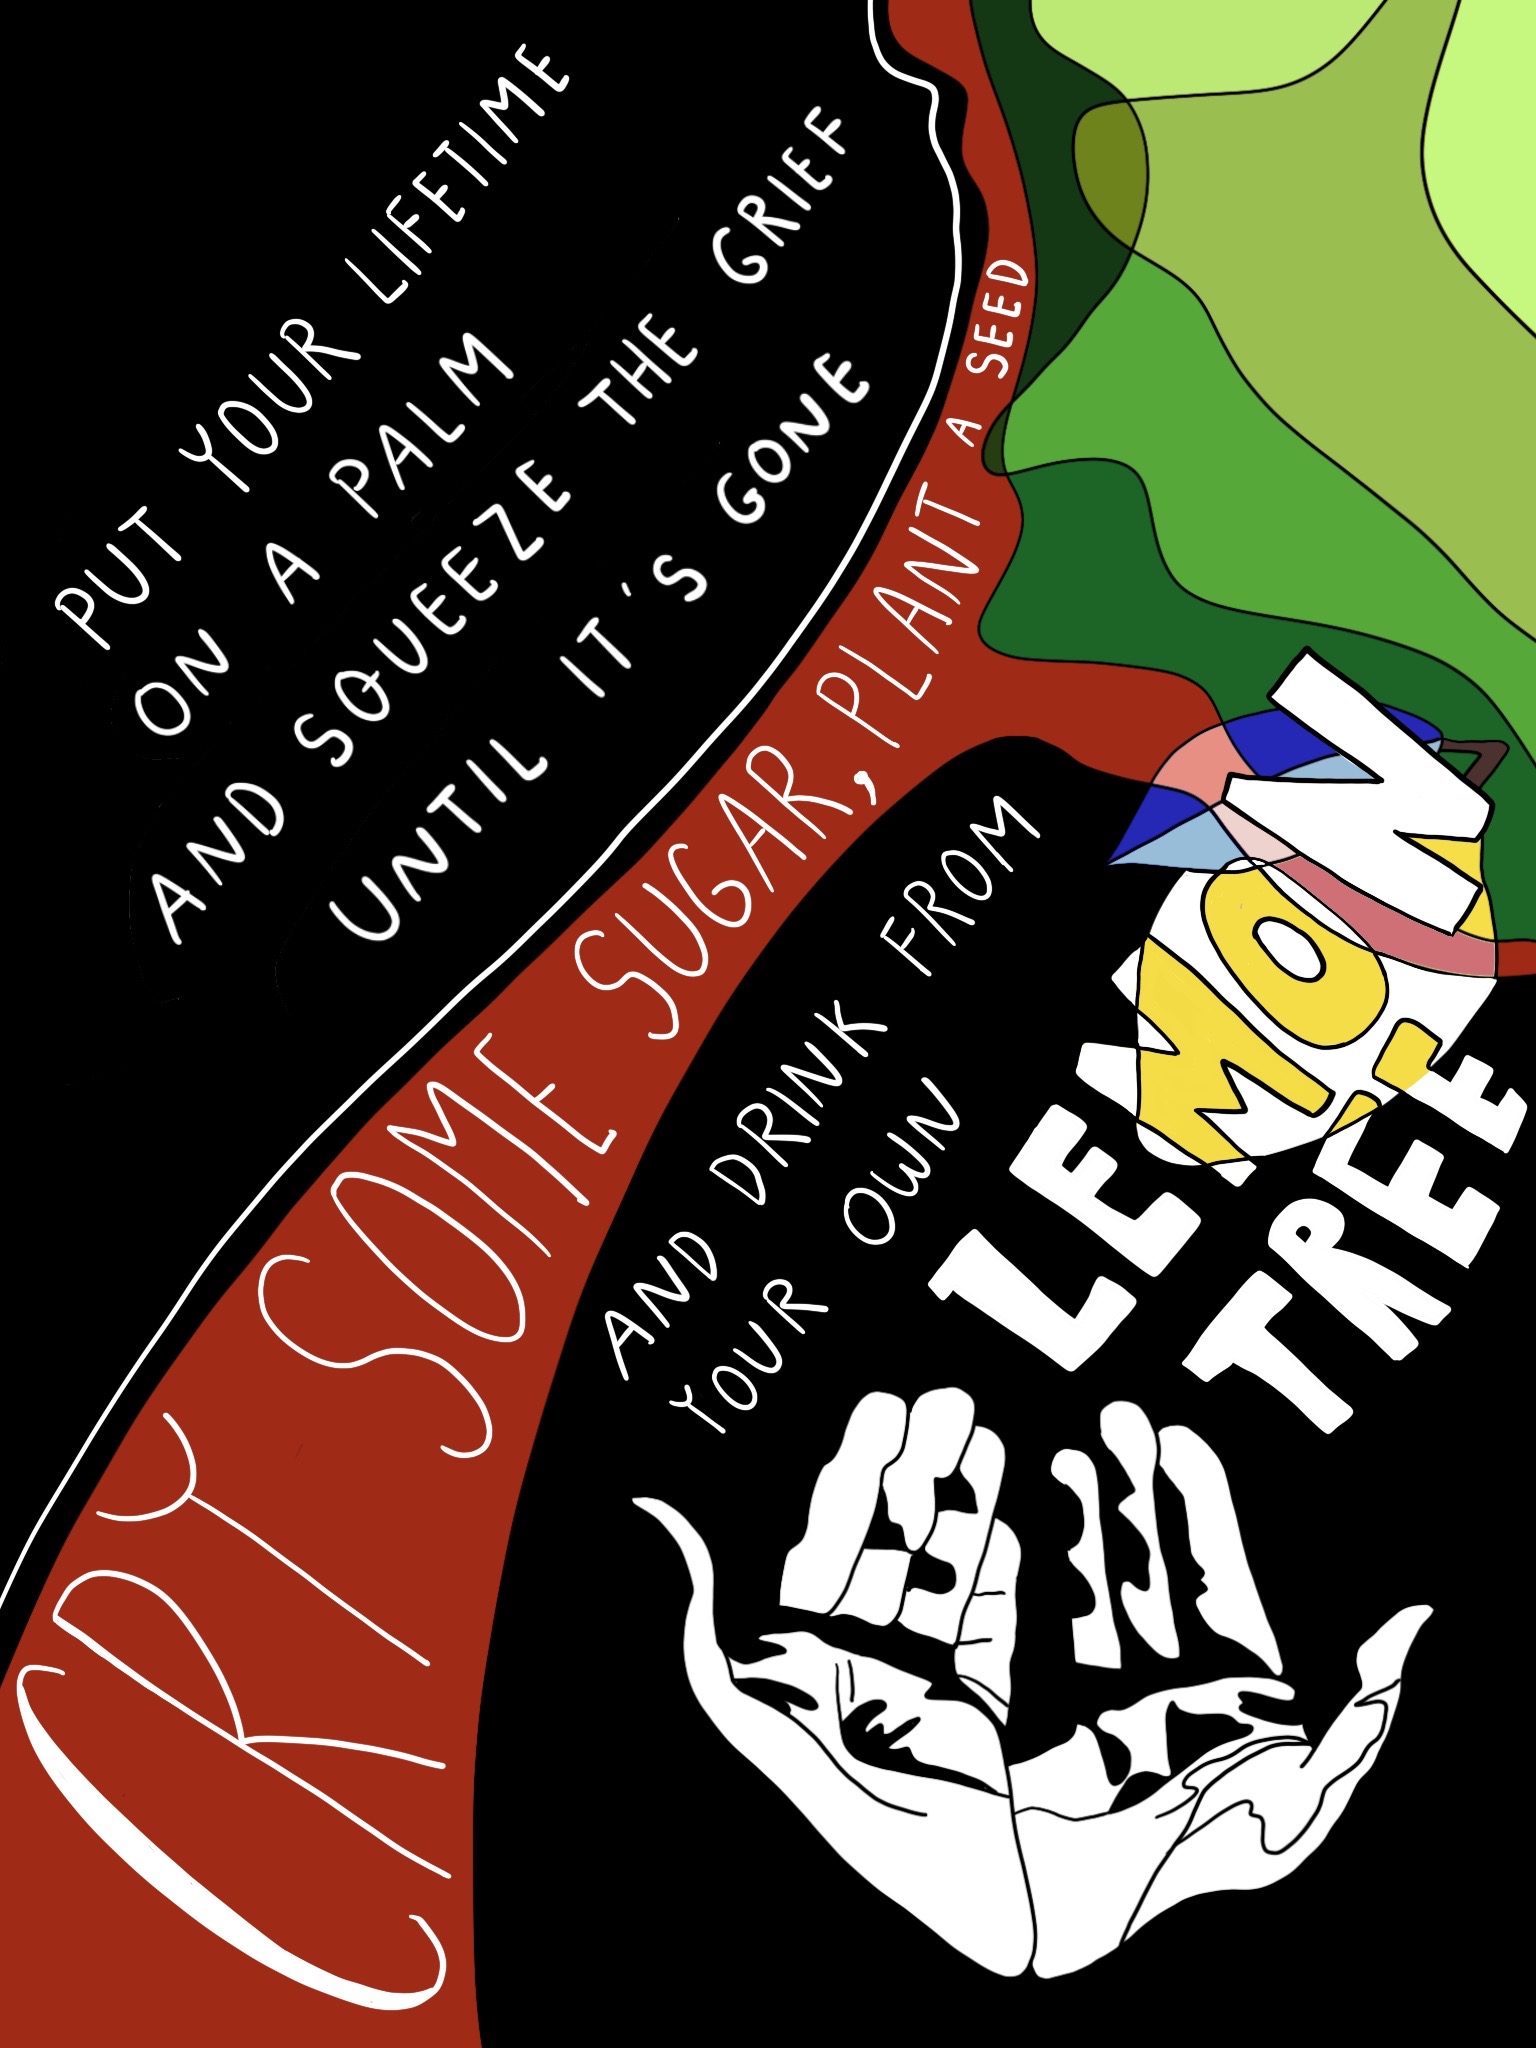 PUT YOUR LIFETIME
ON A PALM
AND SQUEEZE THE GRIEF
UNTIL IT'S GONE
CRY SOME SUGAR, PLANT A SEED
AND DRINK FROM
YOUR OWN
LEMON
TREE